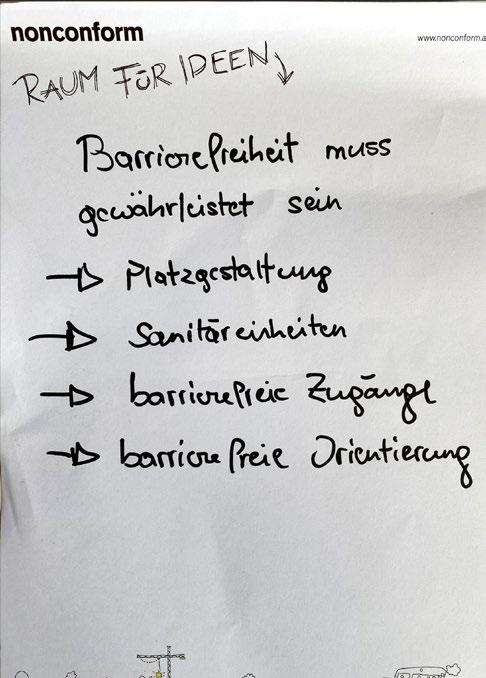 nonconform
www.nonconform.a
RAUM FÜR IDEEN
Barrierefreiheit muss
gewährleistet sein
Platzgestaltung
Sanitäreinheiten
barrierefreie Zugänge
barrierefreie Orientierung